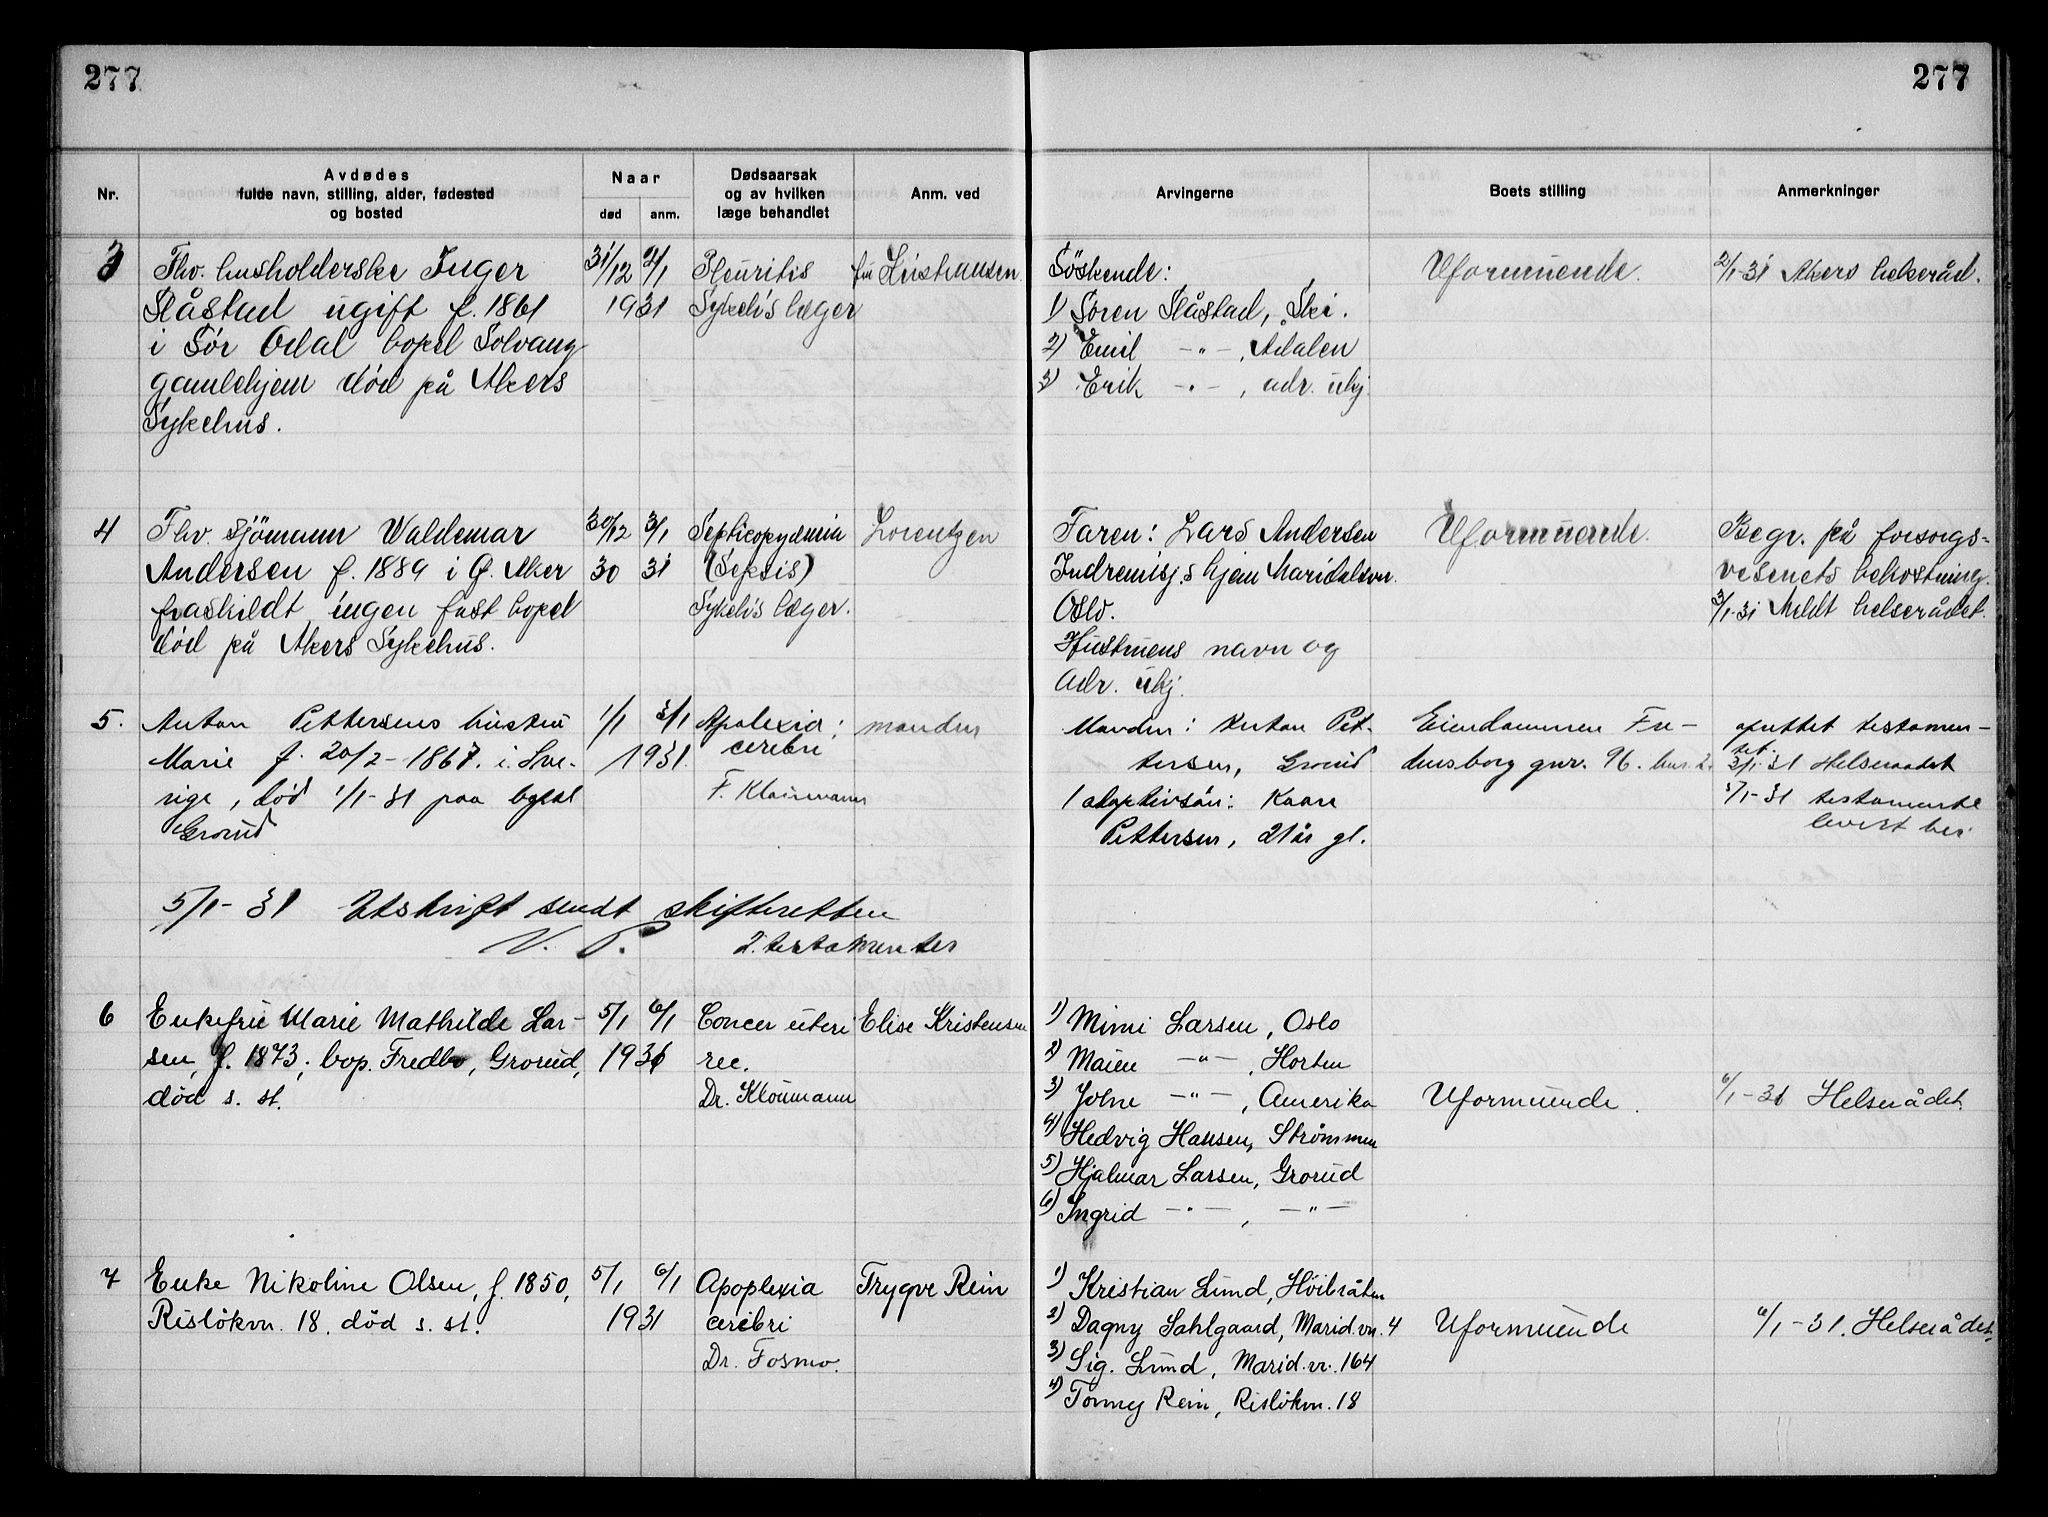 277
277
Nr.
Avdødes
fulde navn, stilling, alder, fødested
og bosted
Naar
død
anm.
Dødsaarsak
og av hvilken
læge behandlet
Anm. ved
Arvingerne
Boets stilling
Anmerkninger
3
Fhv. husholderske Inger
Slåstad ugift f. 1861
i Sör Odal bopel Solvang
gamlehjem död på Akers
Sykehus.
31/12 2/1
1931
Pleuritis
Sykeh's læger
fru Kristiansen
Söskende:
1) Sören Slåstad, Ski.
2) Emil —"—, Ådalen
3) Erik —"—, adr. ukj.
Uformuende.
2/1-31 Akers helseråd.
4
Fhv. sjömann Waldemar
Andersen f. 1889 i Ø. Aker
fraskildt ingen fast bopel
död på Akers Sykehus.
30/12 3/1
30 31
Septicopydmia
(Sepsis)
Sykeh's læger.
Lorentzen
Faren: Lars Andersen
Indremisj.s hjem Maridalsvn.
Oslo.
Hustruens navn og
adr. ukj.
Uformuende.
Begr. på forsorgs-
vesenets bekostning.
3/1-31 Meldt helserådet.
5.
Anton Pettersens hustru
Marie f. 20/2-1867. i Sve-
rige, död 1/1-31 paa bopæl
Grorud
1/1 3/1
1931.
Apolexia
cerebri
F. Kloumann
manden
Manden: Anton Pet-
tersen, Grorud
1 adoptivsön: Kaare
Pettersen, 21 år gl.
Eiendommen Fre-
densborg gnr. 96. bnr. 2.
oprettet testamen-
tet.
3/1-31 Helseraadet
5/1-31 testamente
levert her
5/1-31 Utskrift sendt skifteretten
V. P. 2. testamenter
6
Enkefru Marie Mathilde Lar-
sen, f. 1873, bop. Fredbo, Grorud,
död s. st.
5/1 6/1
1931
Cancer uteri
rec.
Dr. Kloumann
Elise Kristensen
1) Mimi Larsen, Oslo
2) Maien —"—, Horten
3) Johne —"—, Amerika
4) Hedvig Hansen, Strømmen
5) Hjalmar Larsen, Grorud
6) Ingrid —"—, —"—
Uformuende.
6/1-31 Helserådet.
7
Enke Nikoline Olsen, f. 1850,
Rislökvn. 18, död s. st.
5/1 6/1
1931
Apoplexia
cerebri
Dr. Fosmo.
Trygve Rein
1) Kristian Lund, Höibråten
2) Dagny Sahlgaard, Marid.vn. 4
3) Sig. Lund, Marid.vn. 164
4) Tonny Rein, Rislökvn. 18
Uformuende
6/1-31. Helserådet.